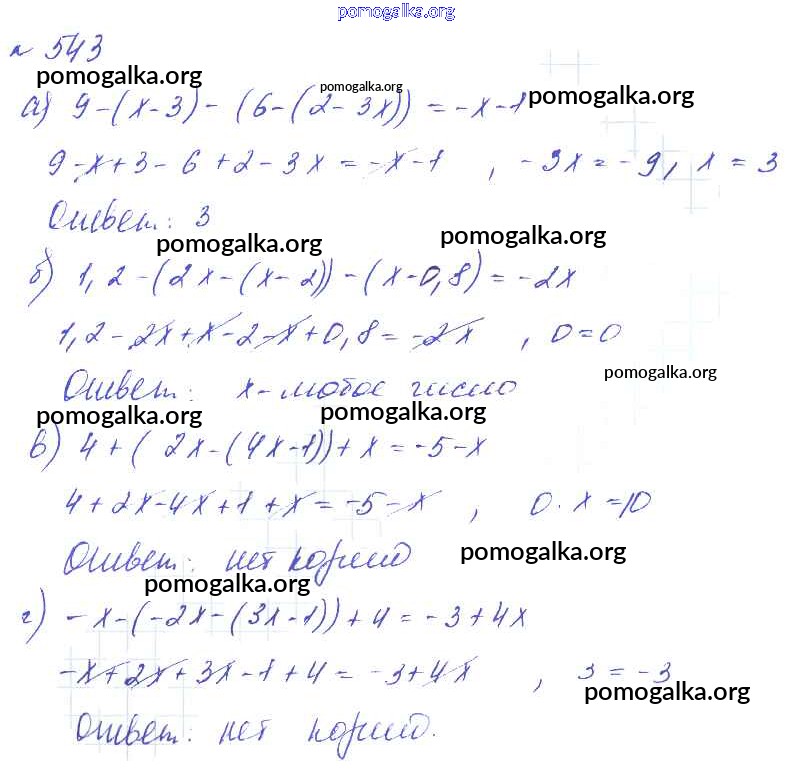 pomogalka.org
№ 543
pomogalka.org pomogalka.org
а) 9-(x-3)-(6-(2-3x)) = -x-1 pomogalka.org
9-x+3-6+2-3x = -x-1 , -3x = -9, x = 3
Ответ: 3
pomogalka.org pomogalka.org
б) 1,2-(2x-(x-2))-(x-0,8) = -2x
1,2-2x+x-2-x+0,8 = -2x , 0=0
pomogalka.org
Ответ: x-любое число
pomogalka.org pomogalka.org
в) 4+(2x-(4x-1))+x = -5-x
4+2x-4x+1+x = -5-x , 0·x=10
Ответ: нет корней pomogalka.org
pomogalka.org
г) -x-(-2x-(3x-1))+4 = -3+4x
-x+2x+3x-1+4 = -3+4x , 3 = -3
pomogalka.org
Ответ: нет корней.